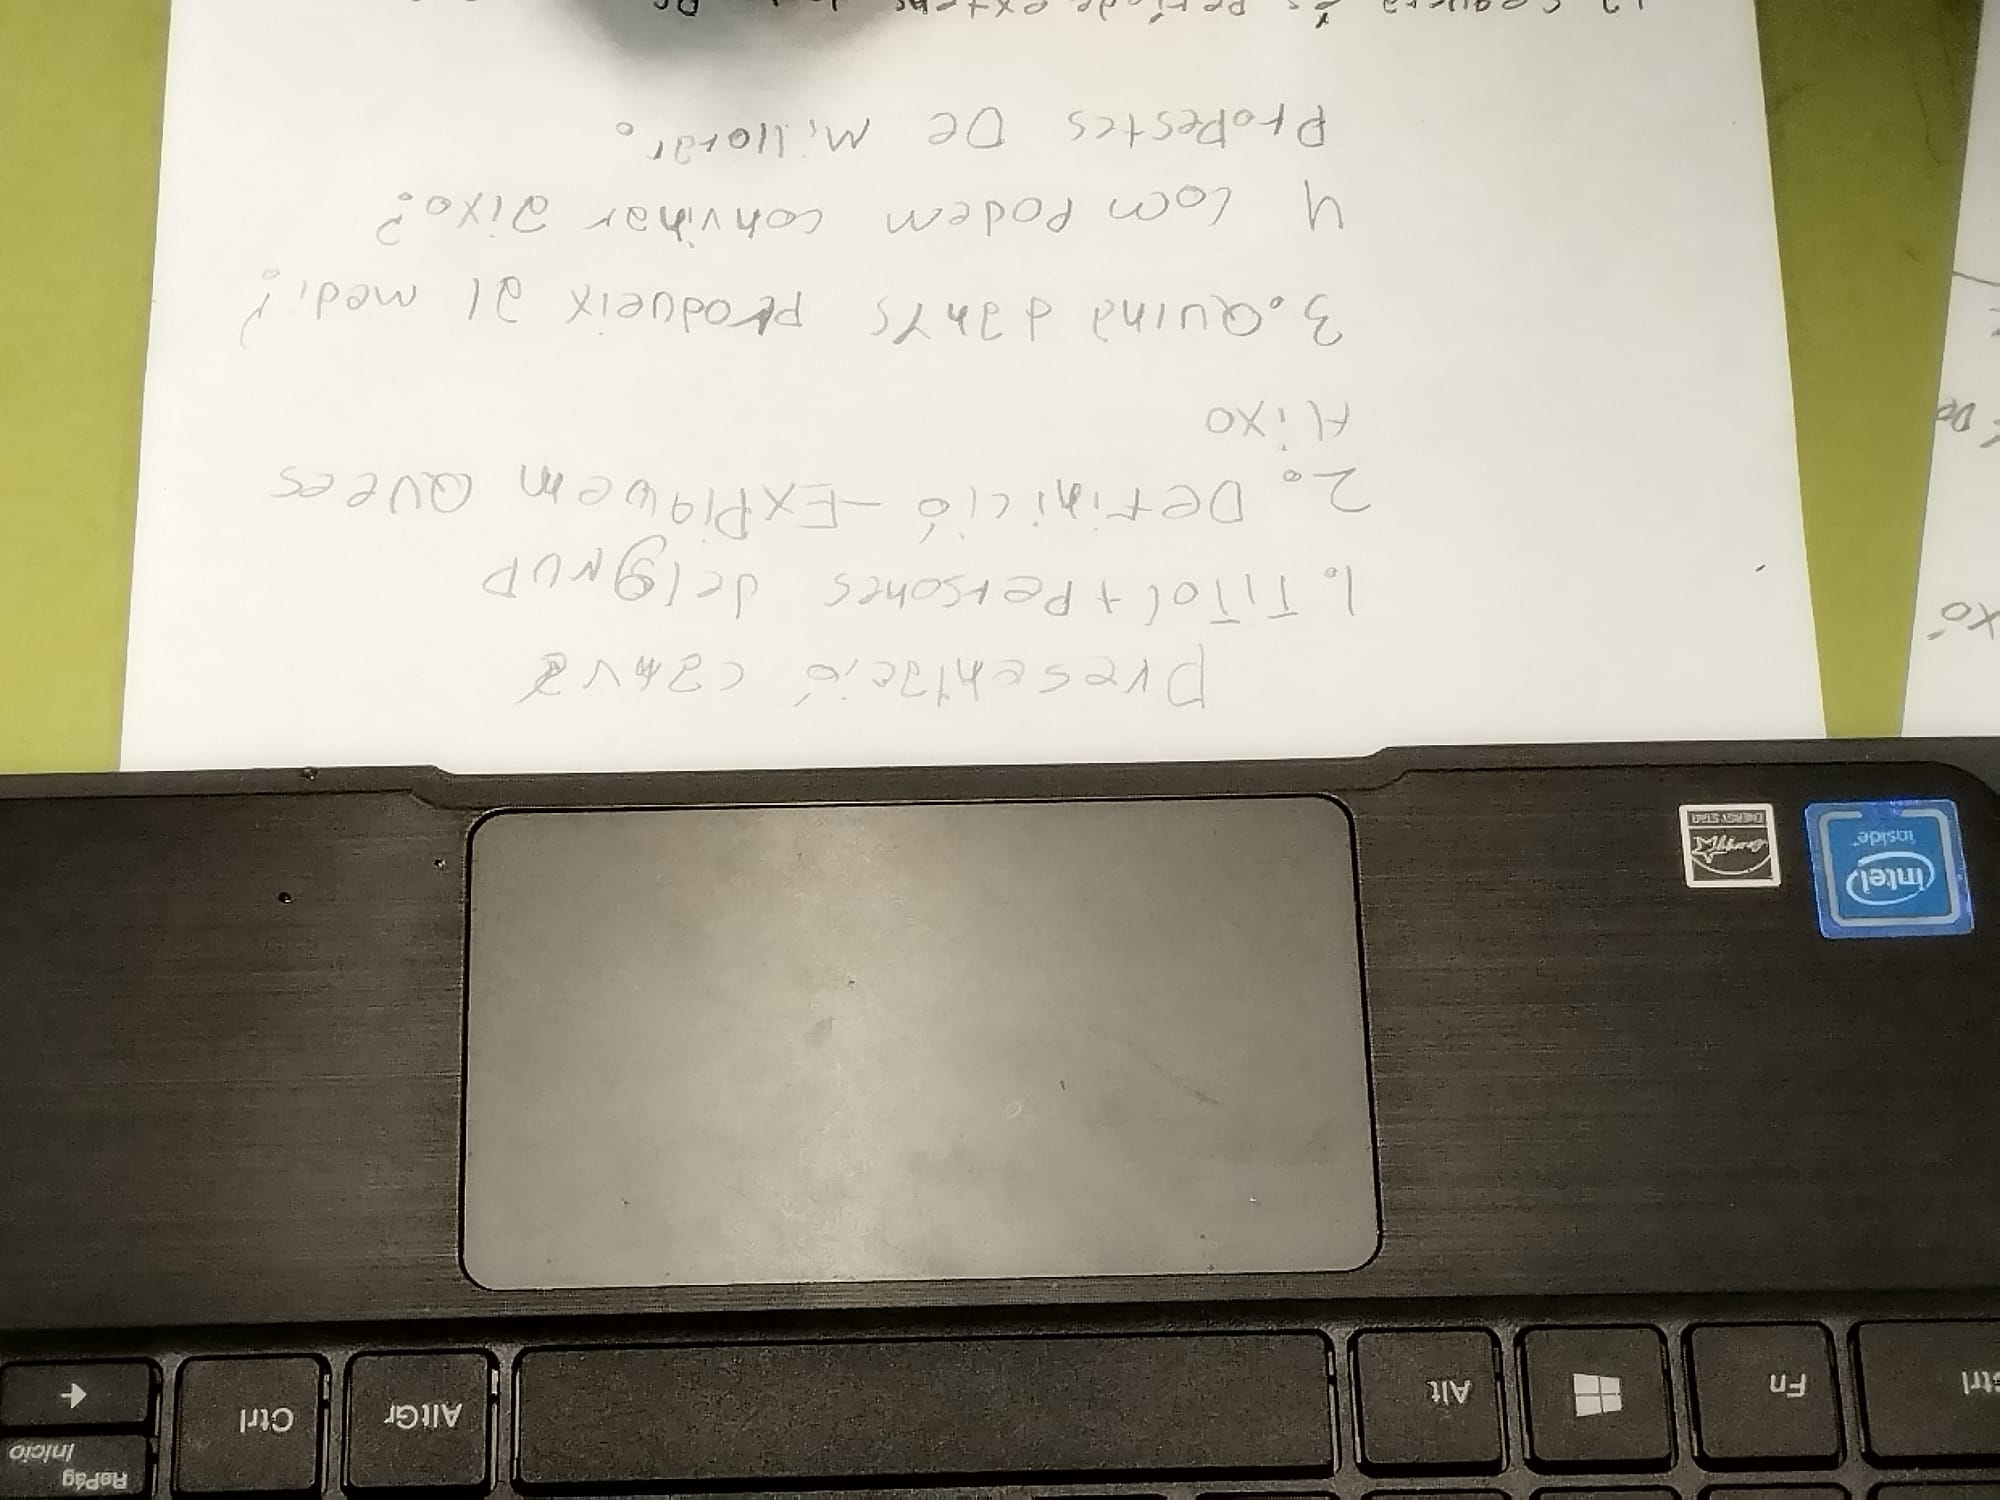 Presentació canva
1. TiTol + Persones del grup
2. Definició - EXPlquem Que es
Aixo
3. Quina danys produeix al medi?
4 Com Podem convinar aixo?
Propestes De Millorar.
intel
inside
ENERGY STAR
Ctrl
Fn
Alt
AltGr
Ctrl
RePág
Inicio